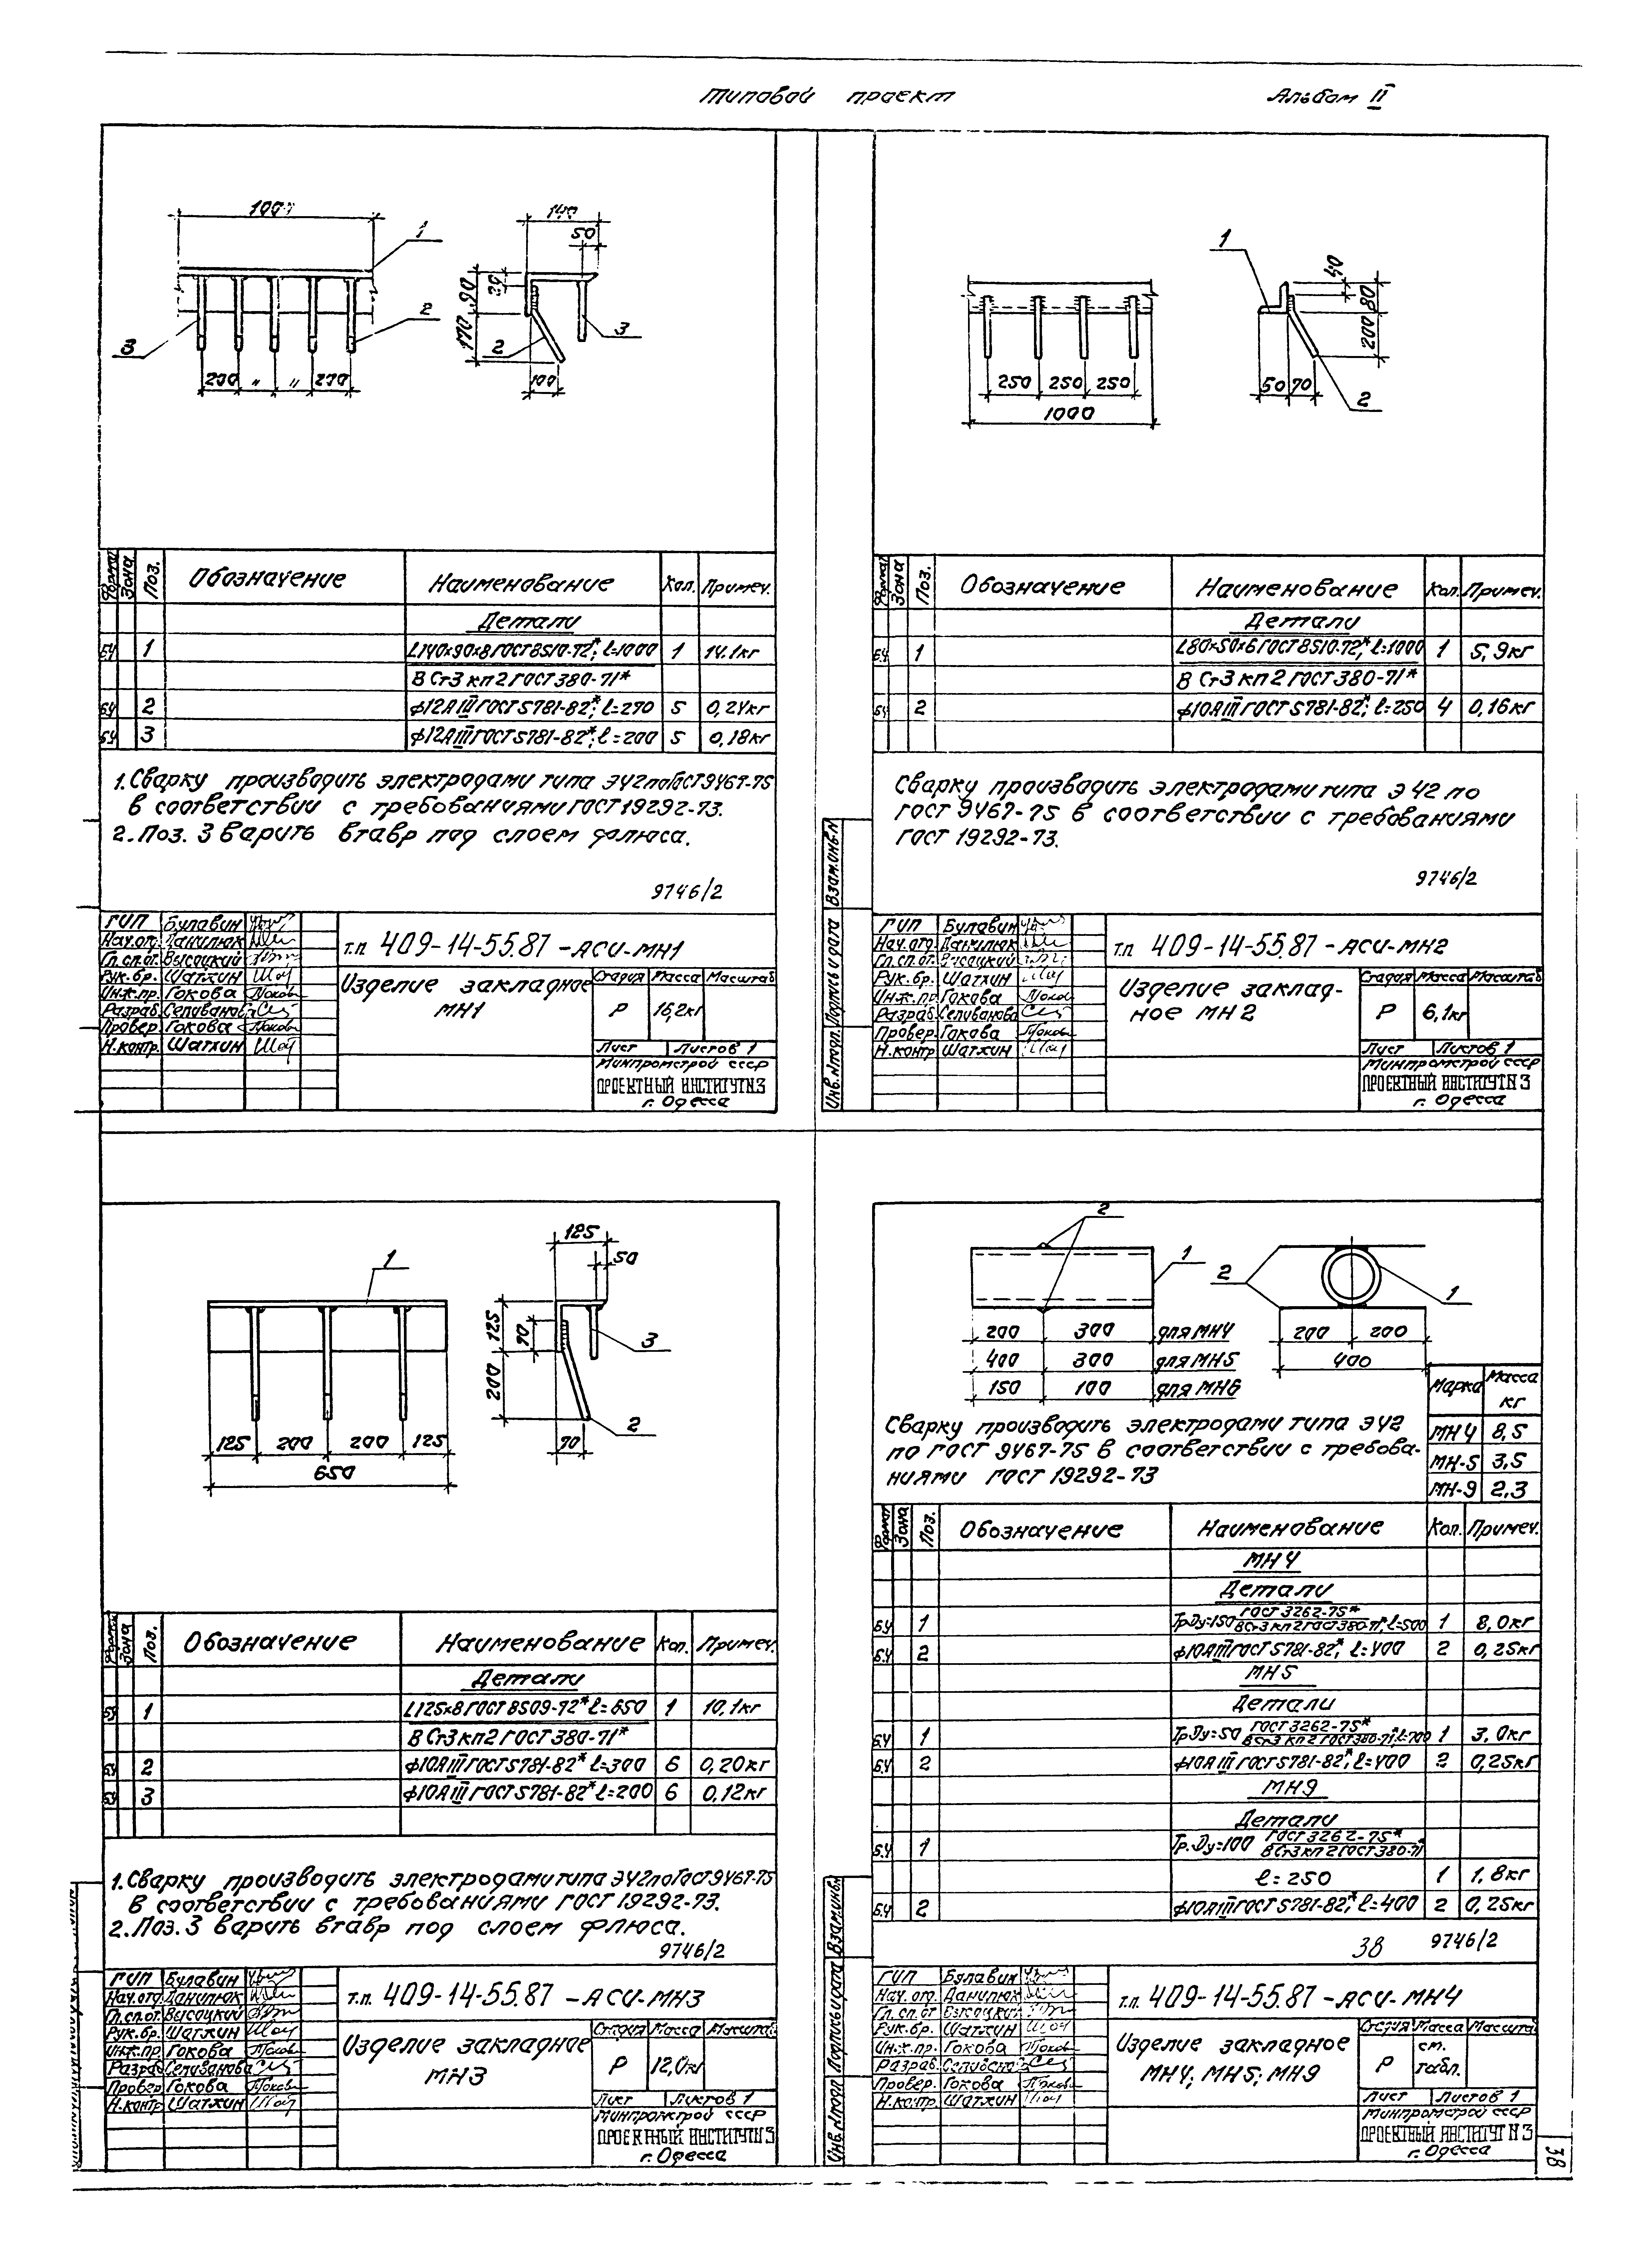 Типовой проект Альбом II
140
50
1
20
90
170
2
3
3
2
200 " " 200
100
Формат Зона Поз. Обозначение Наименование Кол. Примеч.
Детали
БЧ 1 L140×90×8 ГОСТ 8510-72*; ℓ=1000 1 14.1кг
В Ст3 кп2 ГОСТ 380-71*
БЧ 2 ф12АIII ГОСТ 5781-82*; ℓ=270 5 0,24кг
БЧ 3 ф12АIII ГОСТ 5781-82*; ℓ=200 5 0,18кг
1. Сварку производить электродами типа Э42 по ГОСТ 9467-75
в соответствии с требованиями ГОСТ 19292-73.
2. Поз. 3 варить втавр под слоем флюса.
9746/2
ГИП Булавин
Нач.отд. Данилюк
Гл.сп.от. Высоцкий
Рук.бр. Шатхин
Инж.пр. Гокова
Разраб. Селиванова
Провер. Гокова
Н.контр. Шатхин
т.п. 409-14-55.87 - АСИ-МН1
Изделие закладное
МН1
Стадия Масса Масштаб
Р 16,2кг
Лист Листов 1
Минпромстрой СССР
ПРОЕКТНЫЙ ИНСТИТУТ №3
г. Одесса
1
40
80
200
250 250 250
1000
50 70
2
Формат Зона Поз. Обозначение Наименование Кол. Примеч.
Детали
БЧ 1 L80×50×6 ГОСТ 8510-72*; ℓ=1000 1 5,9кг
В Ст3 кп2 ГОСТ 380-71*
БЧ 2 ф10АIII ГОСТ 5781-82*; ℓ=250 4 0,16кг
Сварку производить электродами типа Э42 по
ГОСТ 9467-75 в соответствии с требованиями
ГОСТ 19292-73.
9746/2
Инв.№подл. Подпись и дата Взам.инв.№
ГИП Булавин
Нач.отд. Данилюк
Гл.сп.от. Высоцкий
Рук.бр. Шатхин
Инж.пр. Гокова
Разраб. Селиванова
Провер. Гокова
Н.контр Шатхин
т.п. 409-14-55.87 - АСИ-МН2
Изделие заклад-
ное МН2
Стадия Масса Масштаб
Р 6,1кг
Лист Листов 1
Минпромстрой СССР
ПРОЕКТНЫЙ ИНСТИТУТ №3
г. Одесса
1
125
50
125
90
200
3
2
125 200 200 125
650
70
Формат Зона Поз. Обозначение Наименование Кол. Примеч.
Детали
БЧ 1 L125×8 ГОСТ 8509-72* ℓ=650 1 10,1кг
В Ст3 кп2 ГОСТ 380-71*
БЧ 2 ф10АIII ГОСТ 5781-82* ℓ=300 6 0,20кг
БЧ 3 ф10АIII ГОСТ 5781-82* ℓ=200 6 0,12кг
1. Сварку производить электродами типа Э42 по ГОСТ 9467-75
в соответствии с требованиями ГОСТ 19292-73.
2. Поз. 3 варить втавр под слоем флюса.
9746/2
ГИП Булавин
Нач.отд. Данилюк
Гл.сп.от. Высоцкий
Рук.бр. Шатхин
Инж.пр. Гокова
Разраб. Селиванова
Провер. Гокова
Н.контр Шатхин
т.п. 409-14-55.87 - АСИ-МН3
Изделие закладное
МН3
Стадия Масса Масштаб
Р 12,0кг
Лист Листов 1
Минпромстрой СССР
ПРОЕКТНЫЙ ИНСТИТУТ №3
г. Одесса
2
1
2
1
200 300 для МН4
400 300 для МН5
150 100 для МН6
200 200
400
Марка Масса кг
МН4 8,5
МН-5 3,5
МН-9 2.3
Сварку производить электродами типа Э42
по ГОСТ 9467-75 в соответствии с требова-
ниями ГОСТ 19292-73
Формат Зона Поз. Обозначение Наименование Кол. Примеч.
МН4
Детали
БЧ 1 Тр.Ду=150 ГОСТ 3262-75* В Ст3 кп2 ГОСТ 380-71*, ℓ=500 1 8,0кг
БЧ 2 ф10АIII ГОСТ 5781-82*, ℓ=400 2 0,25кг
МН5
Детали
БЧ 1 Тр.Ду=50 ГОСТ 3262-75* В Ст3 кп2 ГОСТ 380-71*, ℓ=700 1 3,0кг
БЧ 2 ф10АIII ГОСТ 5781-82*, ℓ=400 2 0,25кг
МН9
Детали
БЧ 1 Тр.Ду=100 ГОСТ 3262-75* В Ст3 кп2 ГОСТ 380-71*
ℓ=250 1 1,8кг
БЧ 2 ф10АIII ГОСТ 5781-82*, ℓ=400 2 0,25кг
38 9746/2
Инв.№подл Подпись и дата Взам.инв.№
ГИП Булавин
Нач.отд. Данилюк
Гл.сп.от Высоцкий
Рук.бр. Шатхин
Инж.пр. Гокова
Разраб. Селиванова
Провер. Гокова
Н.контр. Шатхин
т.п. 409-14-55.87 - АСИ-МН4
Изделие закладное
МН4; МН5; МН9
Стадия Масса Масштаб
Р см. табл.
Лист Листов 1
Минпромстрой СССР
ПРОЕКТНЫЙ ИНСТИТУТ №3
г. Одесса
38